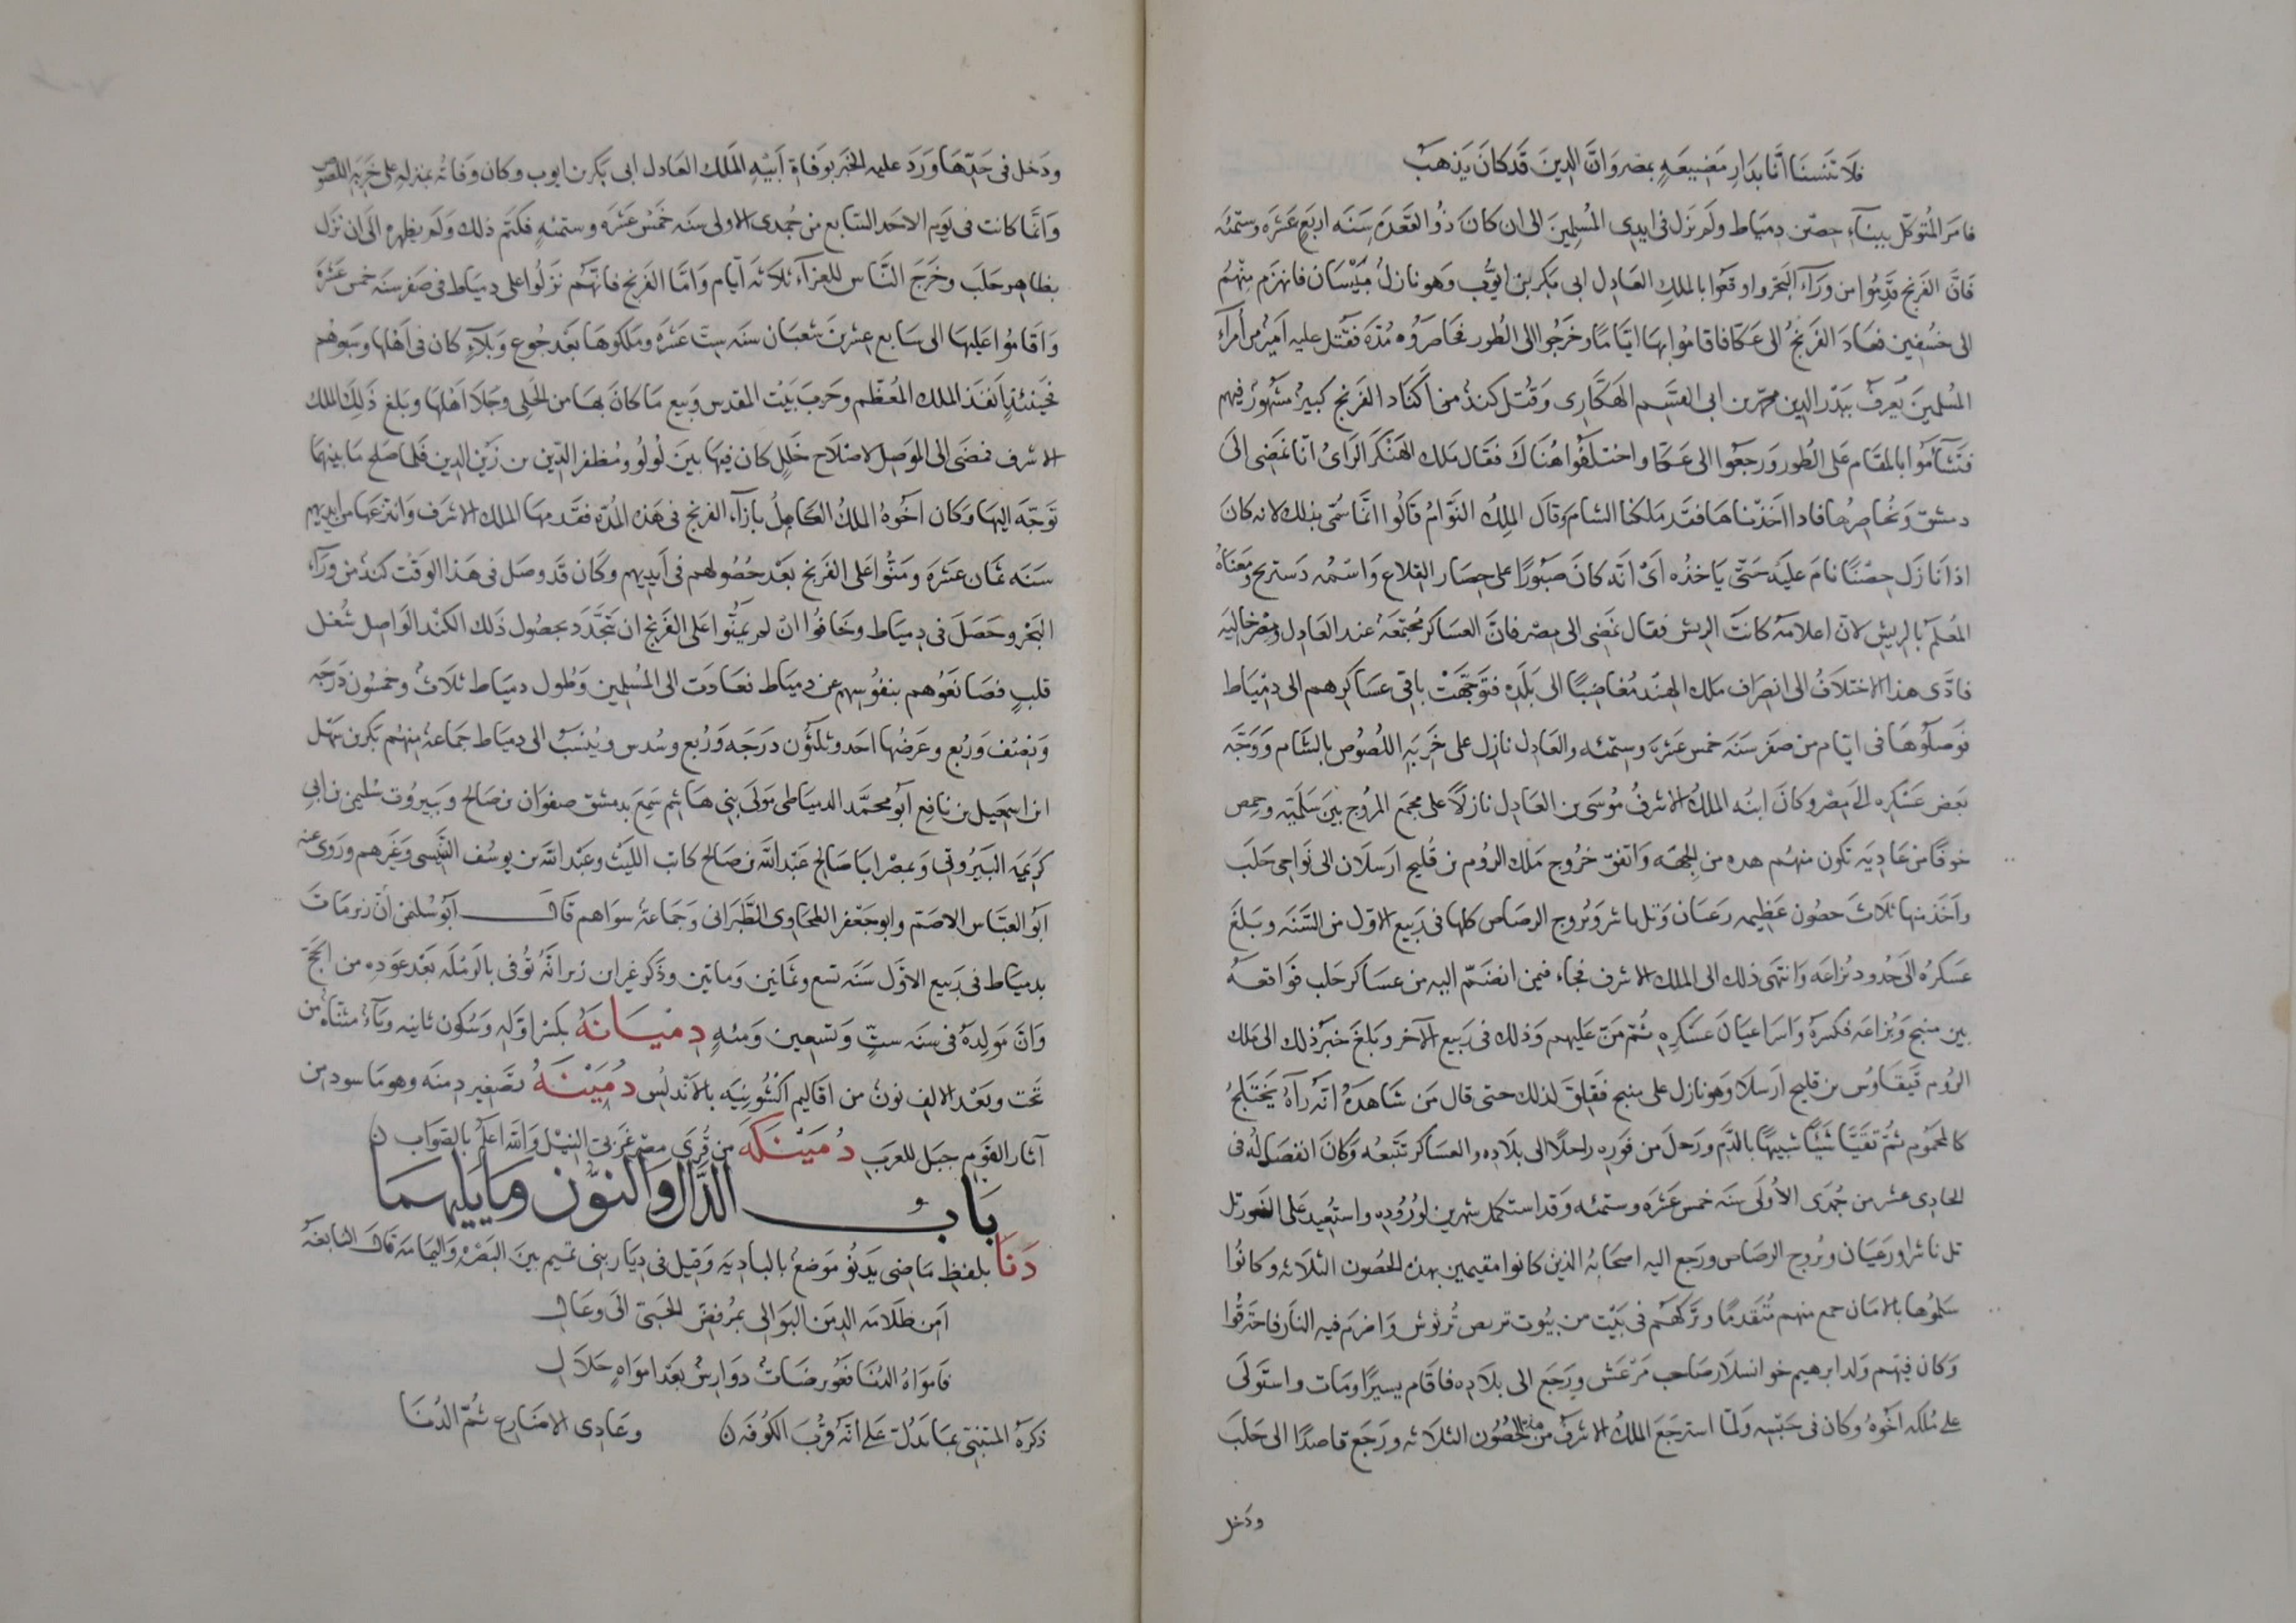 فلا تنسنا انا بدار مضيعه بمصر وان الدين قد كان يذهب
فامر المتوكل ببناء حصن دمياط ولم نزل فى ايدى المسلمين الى ان كان ذو القعدة سنه اربع عشره وستمئه
فان الفرنج قدموا من وراء البحر واوقعوا بالملك العادل ابى بكر بن ايوب وهو نازل ببيسان فانهزم منهم
الى خسفين فعاد الفرنج الى عكا فاقاموا بها اياما وخرجوا الى الطور فحاصروه مدة فقتل عليه امير من امراء
المسلمين يعرف ببدر الدين محمد بن ابى القسم الهكارى وقتل كند من اكناد الفرنج كبير مشهور فيهم
فتشاءموا بالمقام على الطور ورجعوا الى عكا واختلفوا هناك فقال ملك الهنكر الراى انا نمضى الى
دمشق ونحاصرها فاذا اخذناها فقد ملكنا الشام وقال الملك النوام قالوا انما سمى بذلك لانه كان
اذا نازل حصنا نام عليه حتى ياخذه اى انه كان صبورا على حصار القلاع واسمه دستريج ومعناه
المعلم بالريش لان اعلامه كانت الريش فقال نمضى الى مصر فان العساكر مجتمعة عند العادل ومصر خاليه
فادى هذا الاختلاف الى انصراف ملك الهند مغاضبا الى بلده فتوجهت باقى عساكرهم الى دمياط
فوصلوها فى ايام من صفر سنه خمس عشره وستمئه والعادل نازل على خربه اللصوص بالشام ووجه
بعض عسكره الى مصر وكان ابنه الملك الاشرف موسى بن العادل نازلا على مجمع المروج بين سلميه وحمص
خوفا من عاديه تكون منهم هده من الجهه واتفق خروج ملك الروم بن قليج ارسلان الى نواحى حلب
واخذ منها ثلاث حصون عظيمه رعبان وتل باشر وبروج الرصاص كلها فى ربيع الاول من السنه وبلغ
عسكره الى حدود بزاعه وانتهى ذلك الى الملك الاشرف فجاء فيمن انضم اليه من عساكر حلب فواقعه
بين منبج وبزاعه فكسره واسر اعيان عسكره ثم من عليهم وذلك فى ربيع الآخر وبلغ خبر ذلك الى ملك
الروم قيقاوس بن قليج ارسلا وهو نازل على منبج فقلق لذلك حتى قال من شاهده انه رآه يختلج
كالمحموم ثم تقيا شيئا شبيها بالدم ورحل من فوره راحلا الى بلاده والعساكر تتبعه وكان انفصاله فى
الحادى عشر من جمدى الاولى سنه خمس عشره وستمئه وقد استكمل شهرين لوروده واستعيد على الفور تل
تل ناشرا ورعبان وبروج الرصاص ورجع اليه اصحابه الذين كانوا مقيمين بهذه الحصون الثلاثه وكانوا
سلموها بالامان جمع منهم متقدما وتركهم فى بيت من بيوت تربص ترنوش واضرم فيه النار فاحترقوا
وكان فيهم ولد ابرهيم خوانسلار صاحب مرعش ورجع الى بلاده فاقام يسيرا ومات واستولى
على ملكه اخوه وكان فى حبسه ولما استرجع الملك الاشرف من هذه الحصون الثلاثه ورجع قاصدا الى حلب
ودخل
ودخل فى حدها ورد عليه الخبر بوفاة ابيه الملك العادل ابى بكر بن ايوب وكان وفاته بمنزله على خربه اللصوص
وانما كانت فى يوم الاحد السابع من جمدى الاولى سنه خمس عشره وستمئه فكتم ذلك ولم يظهره الى ان نزل
بظاهر حلب وخرج الناس للعزاء ثلاثه ايام واما الفرنج فانهم نزلوا على دمياط فى صفر سنه خمس عشره
واقاموا عليها الى سابع عشرين شعبان سنه ست عشره وملكوها بعد جوع وبلاء كان فى اهلها وسبوهم
فحينئذ انفذ الملك المعظم وخرب بيت المقدس وبيع ما كان بها من الحلى وجلا اهلها وبلغ ذلك الملك
الاشرف فمضى الى الموصل لاصلاح خلل كان فيها بين لولو ومظفر الدين بن زين الدين فلما صلح ما بينهما
توجه اليها وكان اخوه الملك الكامل بازاء الفرنج فى هذه المده فقدمها الملك الاشرف وانتزعها من ايديهم
سنه ثمان عشره ومنوا على الفرنج بعد حصولهم فى ايديهم وكان قد وصل فى هذا الوقت كند من وراء
البحر وحصل فى دمياط وخافوا ان لم يمنوا على الفرنج ان يتجدد بحصول ذلك الكند الواصل شغل
قلب فصانعوهم بنفوسهم عن دمياط فعادت الى المسلمين وطول دمياط ثلاث وخمسون درجه
ونصف وربع وعرضها احد وثلثون درجه وربع وسدس وينسب الى دمياط جماعة منهم بكر بن سهل
ابن اسمعيل بن نافع ابو محمد الدمياطى مولى بنى هاشم سمع بدمشق صفوان بن صالح وببيروت سليمن بن ابى
كريمه البيروتى وبمصر ابا صالح عبد الله بن صالح كاتب الليث وعبد الله بن يوسف التنيسى وغيرهم وروى عنه
ابو العباس الاصم وابو جعفر الطحاوى الطبرانى وجماعة سواهم قال ابو سليمن ابن زبر مات
بدمياط فى ربيع الاول سنه تسع وثمانين وماتين وذكر غير ابن زبر انه توفى بالرمله بعد عوده من الحج
وان مولده فى سنه ست وتسعين ومئه دميانه بكسر اوله وسكون ثانيه وياء مثناه من
تحت وبعد الالف نون من اقاليم اكشونيه بالاندلس دمينه تصغير دمنه وهو ما سود من
آثار القوم جبل للعرب دمينكه من قرى مصر غربى النيل والله اعلم بالصواب ن
باب الدال والنون وما يليهما
دنا بلفظ ماضى يدنو موضع بالباديه وقيل فى ديار بنى تميم بين البصره واليمامه قال النابغه
امن ظلامه الدمن البوالى بمرفض الحبى الى وعال
فامواه الدنا فعويرضات دوارس بعد امواه حلال
ذكره المتنبى بما يدل على انه قرب الكوفه ن وعادى الاضارع ثم الدنا